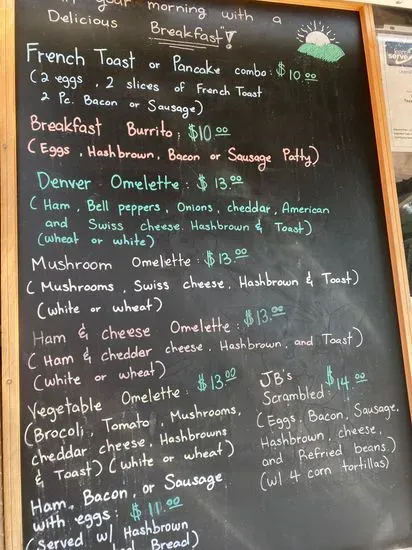 your morning with a
Delicious Breakfast!
French Toast or Pancake combo: $10.00
(2 eggs, 2 slices of French Toast
2 Pc. Bacon or Sausage)
Breakfast Burrito: $10.00
(Eggs, Hashbrown, Bacon or Sausage Patty)
Denver Omelette: $13.00
(Ham, Bell peppers, Onions, cheddar, American
and Swiss cheese. Hashbrown & Toast)
(wheat or white)
Mushroom Omelette: $13.00
(Mushrooms, Swiss cheese, Hashbrown & Toast)
(white or wheat)
Ham & cheese Omelette: $13.00
(Ham & cheddar cheese, Hashbrown, and Toast)
(white or wheat)
Vegetable Omelette: $13.00
(Brocoli, Tomato, Mushrooms,
cheddar cheese, Hashbrowns
& Toast) (white or wheat)
Ham, Bacon, or Sausage
with eggs: $11.00
(Served w/ Hashbrown
Bread)
JB's
Scrambled: $14.00
(Eggs, Bacon, Sausage,
Hashbrown, cheese,
and Refried beans)
(w/ 4 corn tortillas)